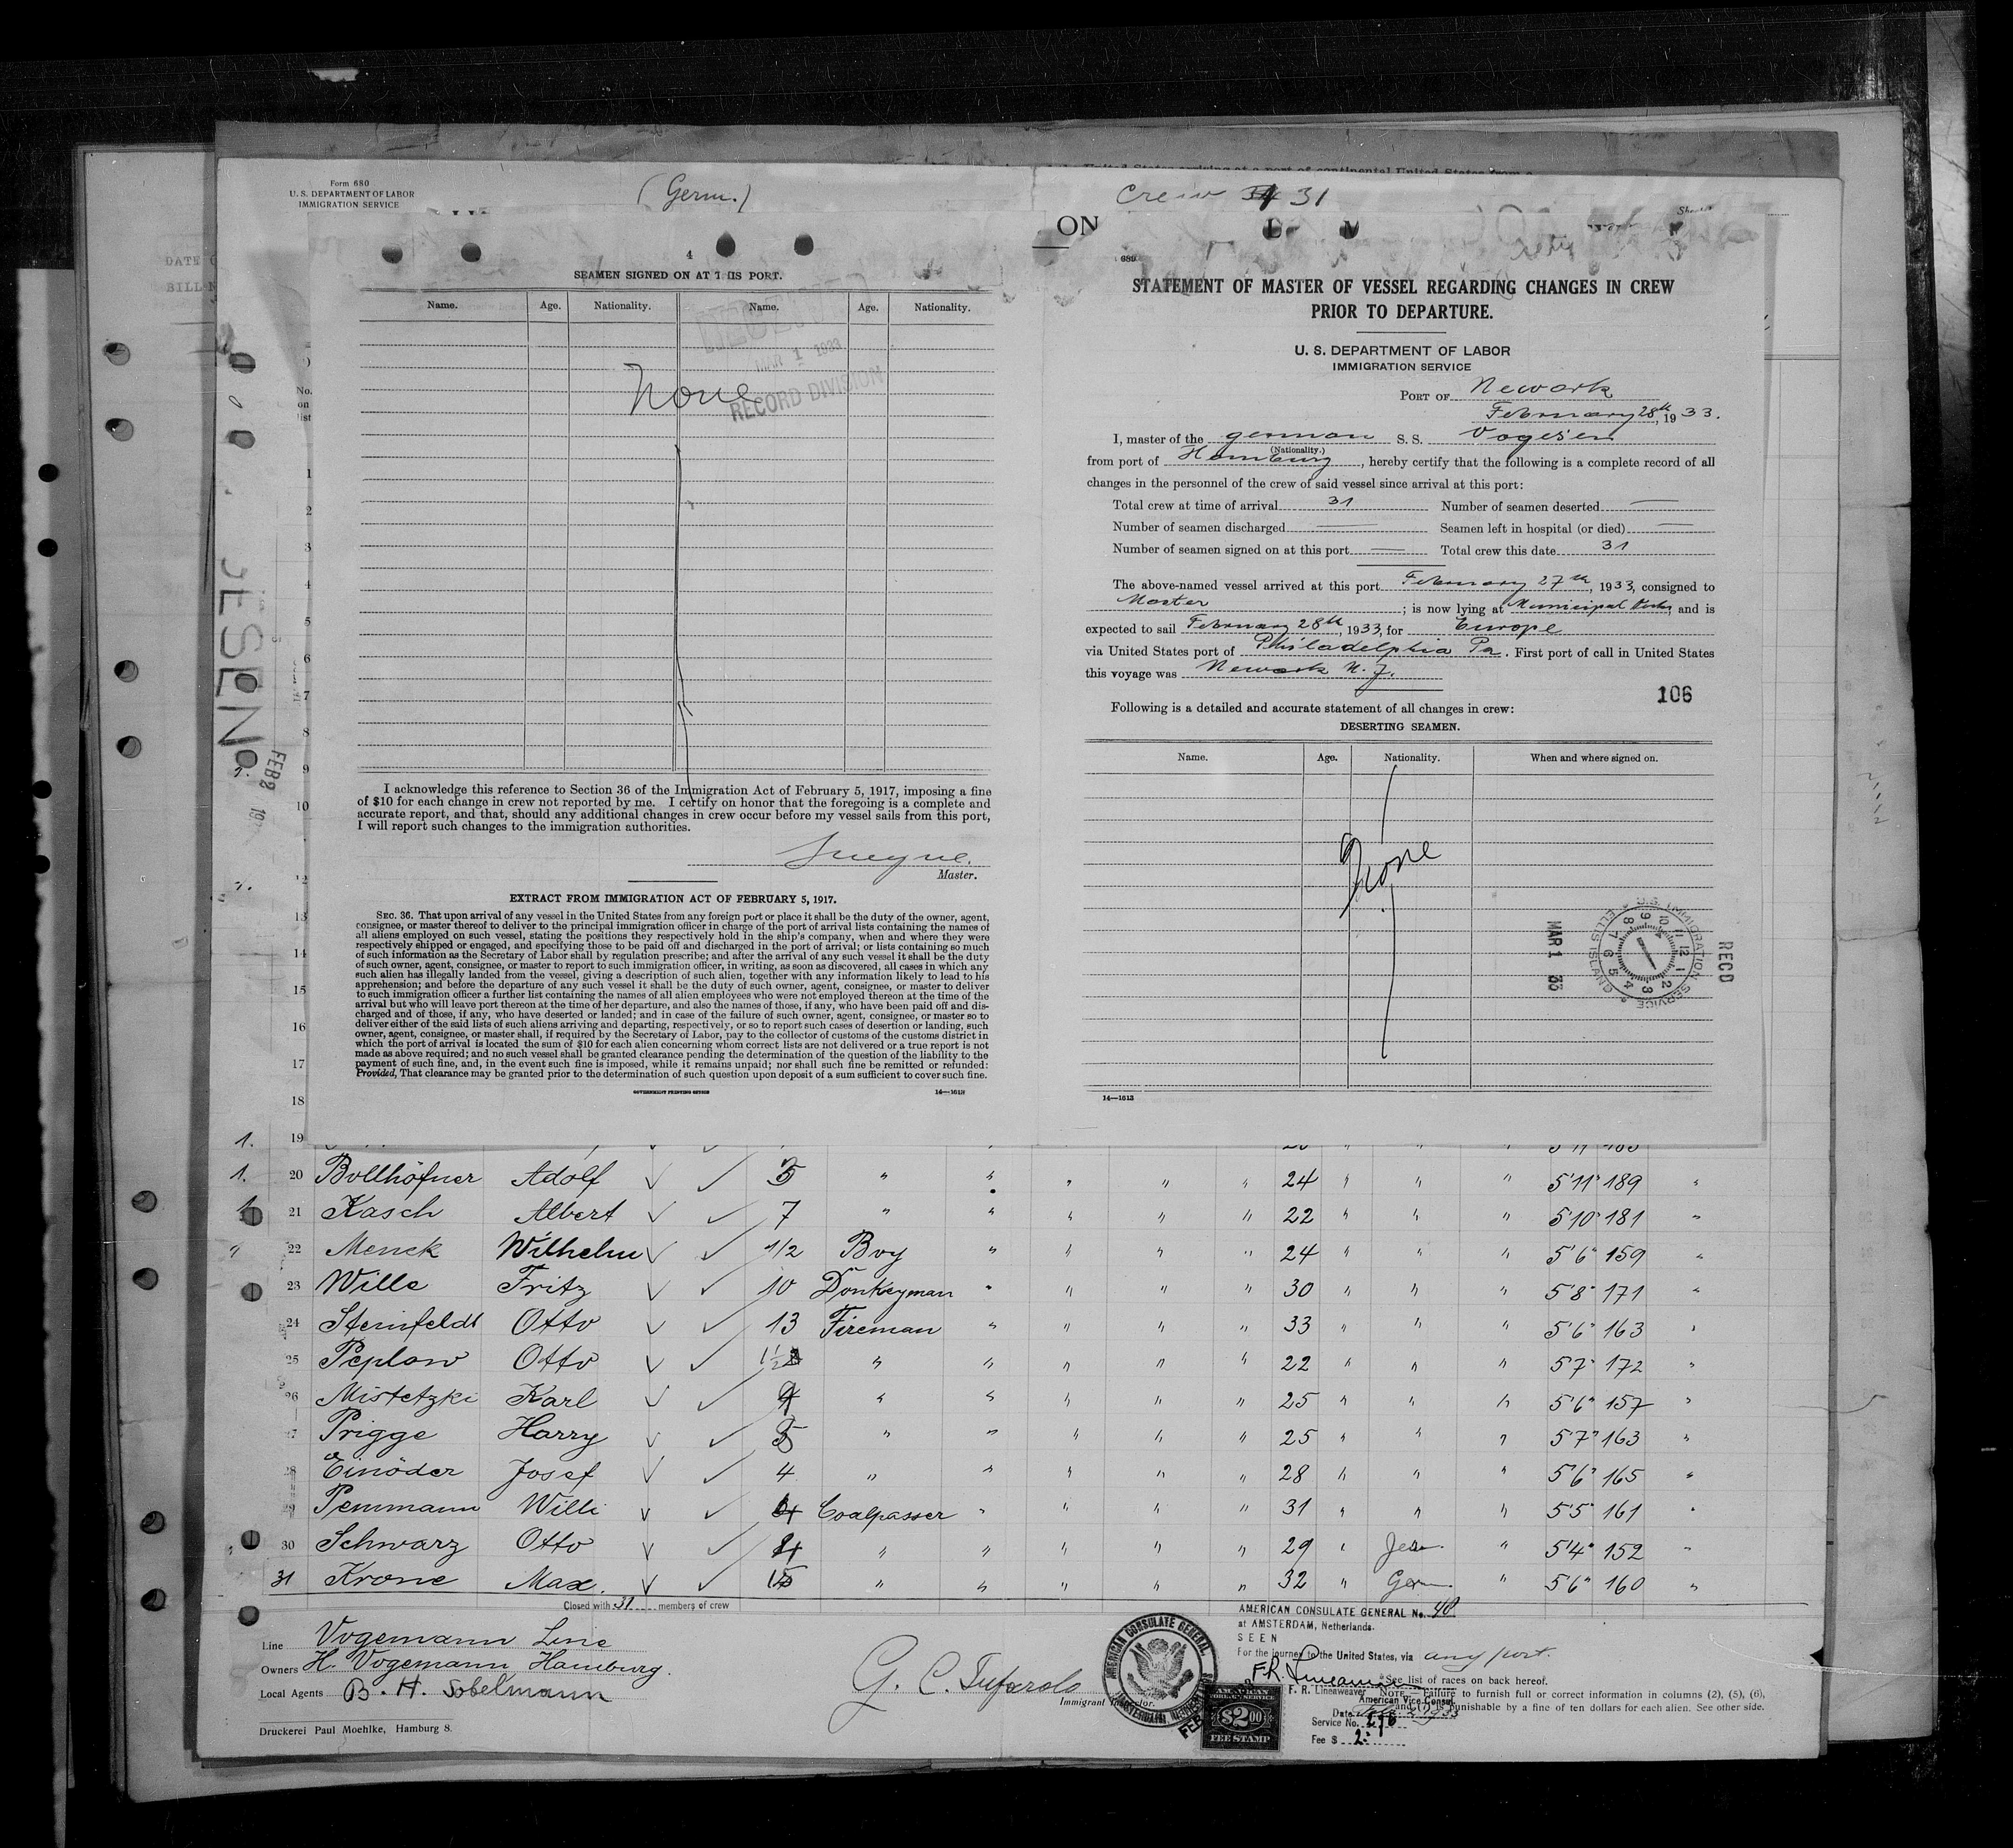 Form 680
U. S. DEPARTMENT OF LABOR
IMMIGRATION SERVICE
(Germ.)
Crew 31
ON
DATE
BILL
No.
on
list
4
SEAMEN SIGNED ON AT THIS PORT.
Name. Age. Nationality. Name. Age. Nationality.
RECEIVED
MAR 1 1933
RECORD DIVISION
None
I acknowledge this reference to Section 36 of the Immigration Act of February 5, 1917, imposing a fine
of $10 for each change in crew not reported by me. I certify on honor that the foregoing is a complete and
accurate report, and that, should any additional changes in crew occur before my vessel sails from this port,
I will report such changes to the immigration authorities.
Master.
EXTRACT FROM IMMIGRATION ACT OF FEBRUARY 5, 1917.
SEC. 36. That upon arrival of any vessel in the United States from any foreign port or place it shall be the duty of the owner, agent,
consignee, or master thereof to deliver to the principal immigration officer in charge of the port of arrival lists containing the names of
all aliens employed on such vessel, stating the positions they respectively hold in the ship's company, when and where they were
respectively shipped or engaged, and specifying those to be paid off and discharged in the port of arrival; or lists containing so much
of such information as the Secretary of Labor shall by regulation prescribe; and after the arrival of any such vessel it shall be the duty
of such owner, agent, consignee, or master to report to such immigration officer, in writing, as soon as discovered, all cases in which any
such alien has illegally landed from the vessel, giving a description of such alien, together with any information likely to lead to his
apprehension; and before the departure of any such vessel it shall be the duty of such owner, agent, consignee, or master to deliver
to such immigration officer a further list containing the names of all alien employees who were not employed thereon at the time of the
arrival but who will leave port thereon at the time of her departure, and also the names of those, if any, who have been paid off and dis-
charged and of those, if any, who have deserted or landed; and in case of the failure of such owner, agent, consignee, or master so to
deliver either of the said lists of such aliens arriving and departing, respectively, or so to report such cases of desertion or landing, such
owner, agent, consignee, or master shall, if required by the Secretary of Labor, pay to the collector of customs of the customs district in
which the port of arrival is located the sum of $10 for each alien concerning whom correct lists are not delivered or a true report is not
made as above required; and no such vessel shall be granted clearance pending the determination of the question of the liability to the
payment of such fine, and, in the event such fine is imposed, while it remains unpaid; nor shall such fine be remitted or refunded:
Provided, That clearance may be granted prior to the determination of such question upon deposit of a sum sufficient to cover such fine.
GOVERNMENT PRINTING OFFICE 14—1613
689
STATEMENT OF MASTER OF VESSEL REGARDING CHANGES IN CREW
PRIOR TO DEPARTURE.
U. S. DEPARTMENT OF LABOR
IMMIGRATION SERVICE
PORT OF Newark
February 28th, 1933.
I, master of the german S. S. Vogesen
(Nationality.)
from port of Hamburg, hereby certify that the following is a complete record of all
changes in the personnel of the crew of said vessel since arrival at this port:
Total crew at time of arrival 31 Number of seamen deserted —
Number of seamen discharged — Seamen left in hospital (or died) —
Number of seamen signed on at this port — Total crew this date 31
The above-named vessel arrived at this port February 27th, 1933, consigned to
Master; is now lying at Municipal Dock, and is
expected to sail February 28th, 1933, for Europe
via United States port of Philadelphia Pa. First port of call in United States
this voyage was Newark N. J.
106
Following is a detailed and accurate statement of all changes in crew:
DESERTING SEAMEN.
Name. Age. Nationality. When and where signed on.
None
RECD
U. S. IMMIGRATION SERVICE ELLIS ISLAND
MAR 1 33
14—1613
ESEN
FEB 2
1
2
3
4
5
6
7
8
9
10
12
13
14
15
16
17
18
1. 19
1. 20 Bollhöfner Adolf 5 " " " " " 24 " " " 5'11" 189 "
21 Kasch Albert 7 " " " " " 22 " " " 5'10" 181 "
22 Menck Wilhelm 1/2 Boy " " " " 24 " " " 5'6" 159 "
23 Wille Fritz 10 Donkeyman " " " " 30 " " " 5'8" 171 "
24 Steinfeldt Otto 13 Fireman " " " " 33 " " " 5'6" 163 "
25 Peplow Otto 1½ " " " " " 22 " " " 5'7" 172 "
26 Mistetzki Karl " " " " " 25 " " " 5'6" 157 "
27 Prigge Harry " " " " " 25 " " " 5'7" 163 "
28 Einöder Josef 4 " " " " " 28 " " " 5'6" 165 "
29 Pemmann Willi Coalpasser " " " " 31 " " " 5'5" 161 "
30 Schwarz Otto " " " " " 29 " " 5'4" 152 "
31 Krone Max. 15 " " " " " 32 " Germ. " 5'6" 160 "
Closed with 31 members of crew
Line Vogemann Line
Owners H. Vogemann Hamburg.
Local Agents B. H. Sobelmann
Druckerei Paul Moehlke, Hamburg 8.
G. C. Tufarolo
Immigrant Inspector.
AMERICAN CONSULATE GENERAL
AMSTERDAM, NETHERLANDS
AMERICAN CONSULATE GENERAL No. 48
at AMSTERDAM, Netherlands.
SEEN
For the journey to the United States, via any port.
F. R. Lineaweaver
American Vice Consul
Date
Service No.
Fee $ 2.
$2.00
FEE STAMP
*See list of races on back hereof.
NOTE.—Failure to furnish full or correct information in columns (2), (5), (6),
and (7) is punishable by a fine of ten dollars for each alien. See other side.